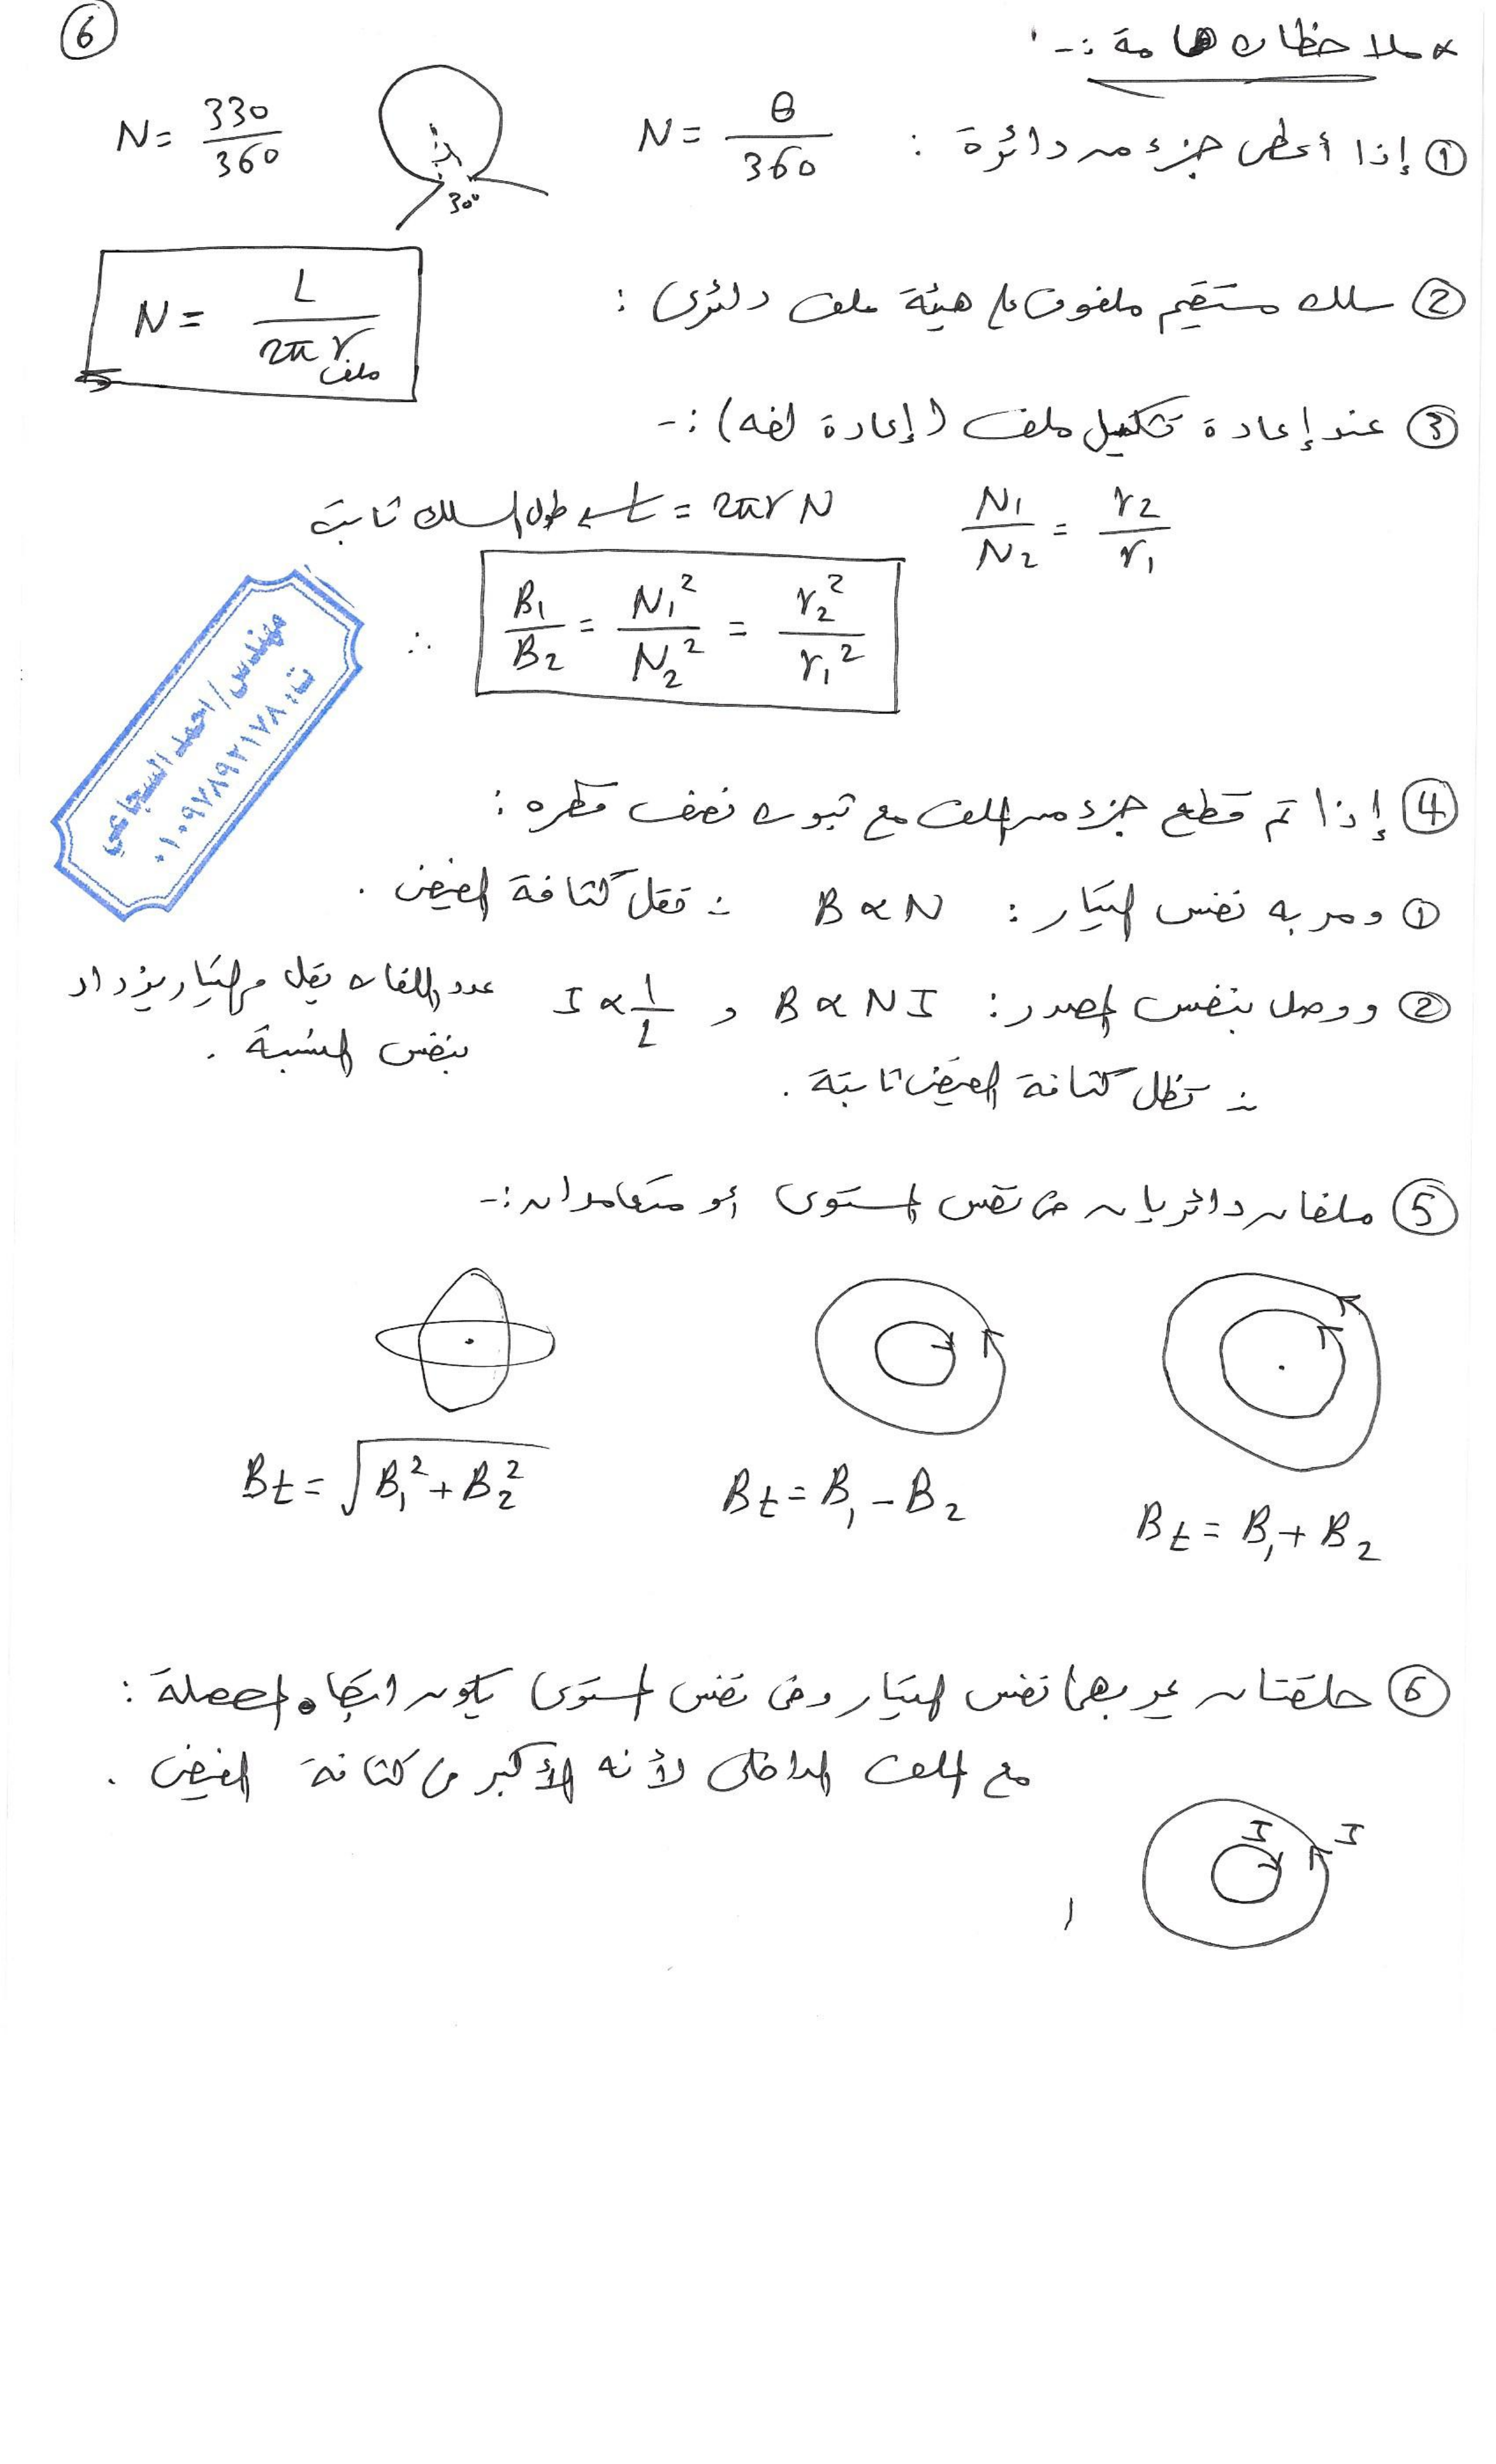 6
* ملاحظات هامة :-
① إذا أعطى جزء من دائرة : N = θ/360
30°
N = 330/360
② سلك مستقيم ملفوف على هيئة ملف دائرى :
N = L / 2πr ملف
③ عند إعادة تشكيل ملف (إعادة لفه) :-
N1/N2 = r2/r1
طول السلك ثابت ← L = 2πrN
∴ B1/B2 = N1²/N2² = r2²/r1²
مهندس/احمد السجاعي
ت: ٠١٠٩٧٨٩٢١٧٨
④ إذا تم قطع جزء من الملف مع ثبوت نصف قطره :
① ومر به نفس التيار : B ∝ N ∴ تقل كثافة الفيض .
② ووصل بنفس المصدر : B ∝ NI و I ∝ 1/L
عدد اللفات يقل والتيار يزداد
بنفس النسبة .
∴ تظل كثافة الفيض ثابتة .
⑤ ملفان دائريان فى نفس المستوى أو متعامدان :-
Bt = B1 + B2
Bt = B1 - B2
Bt = √(B1² + B2²)
⑥ حلقتان يمر بهما نفس التيار وفى نفس المستوى يكون اتجاه المحصلة :
مع الملف الداخلى لأنه الأكبر فى كثافة الفيض .
I I